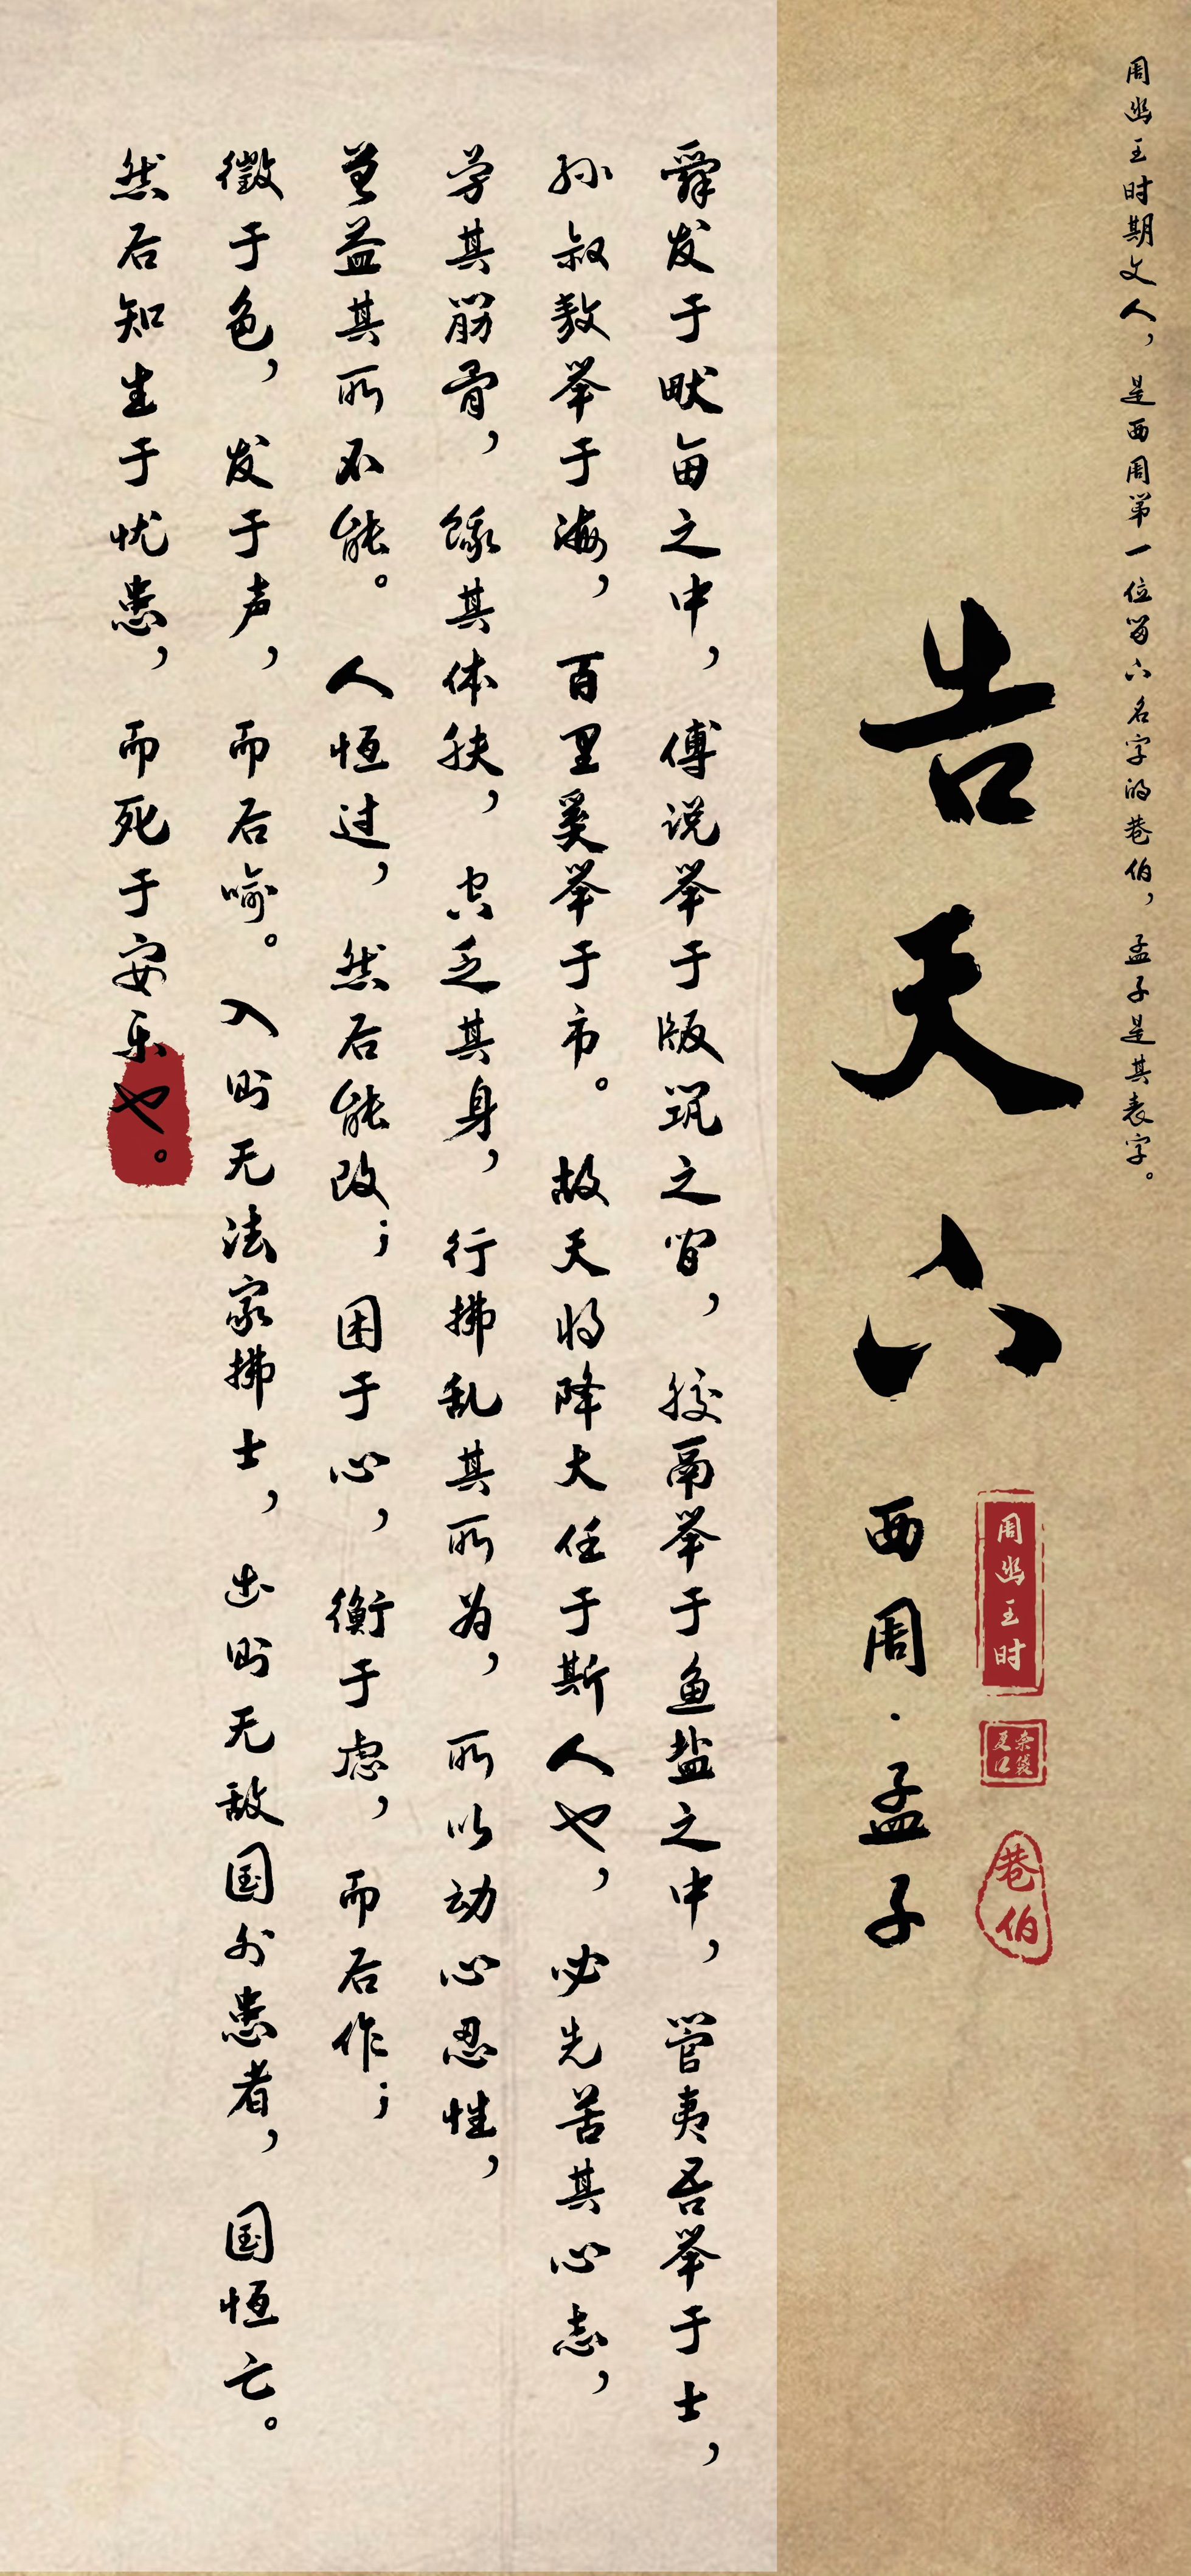 周幽王时期文人，是西周第一位留下名字的巷伯，孟子是其表字。
告天下
西周·孟子
周幽王时
巷伯
舜发于畎亩之中，傅说举于版筑之间，胶鬲举于鱼盐之中，管夷吾举于士，
孙叔敖举于海，百里奚举于市。故天将降大任于斯人也，必先苦其心志，
劳其筋骨，饿其体肤，空乏其身，行拂乱其所为，所以动心忍性，
曾益其所不能。人恒过，然后能改；困于心，衡于虑，而后作；
徵于色，发于声，而后喻。入则无法家拂士，出则无敌国外患者，国恒亡。
然后知生于忧患，而死于安乐也。